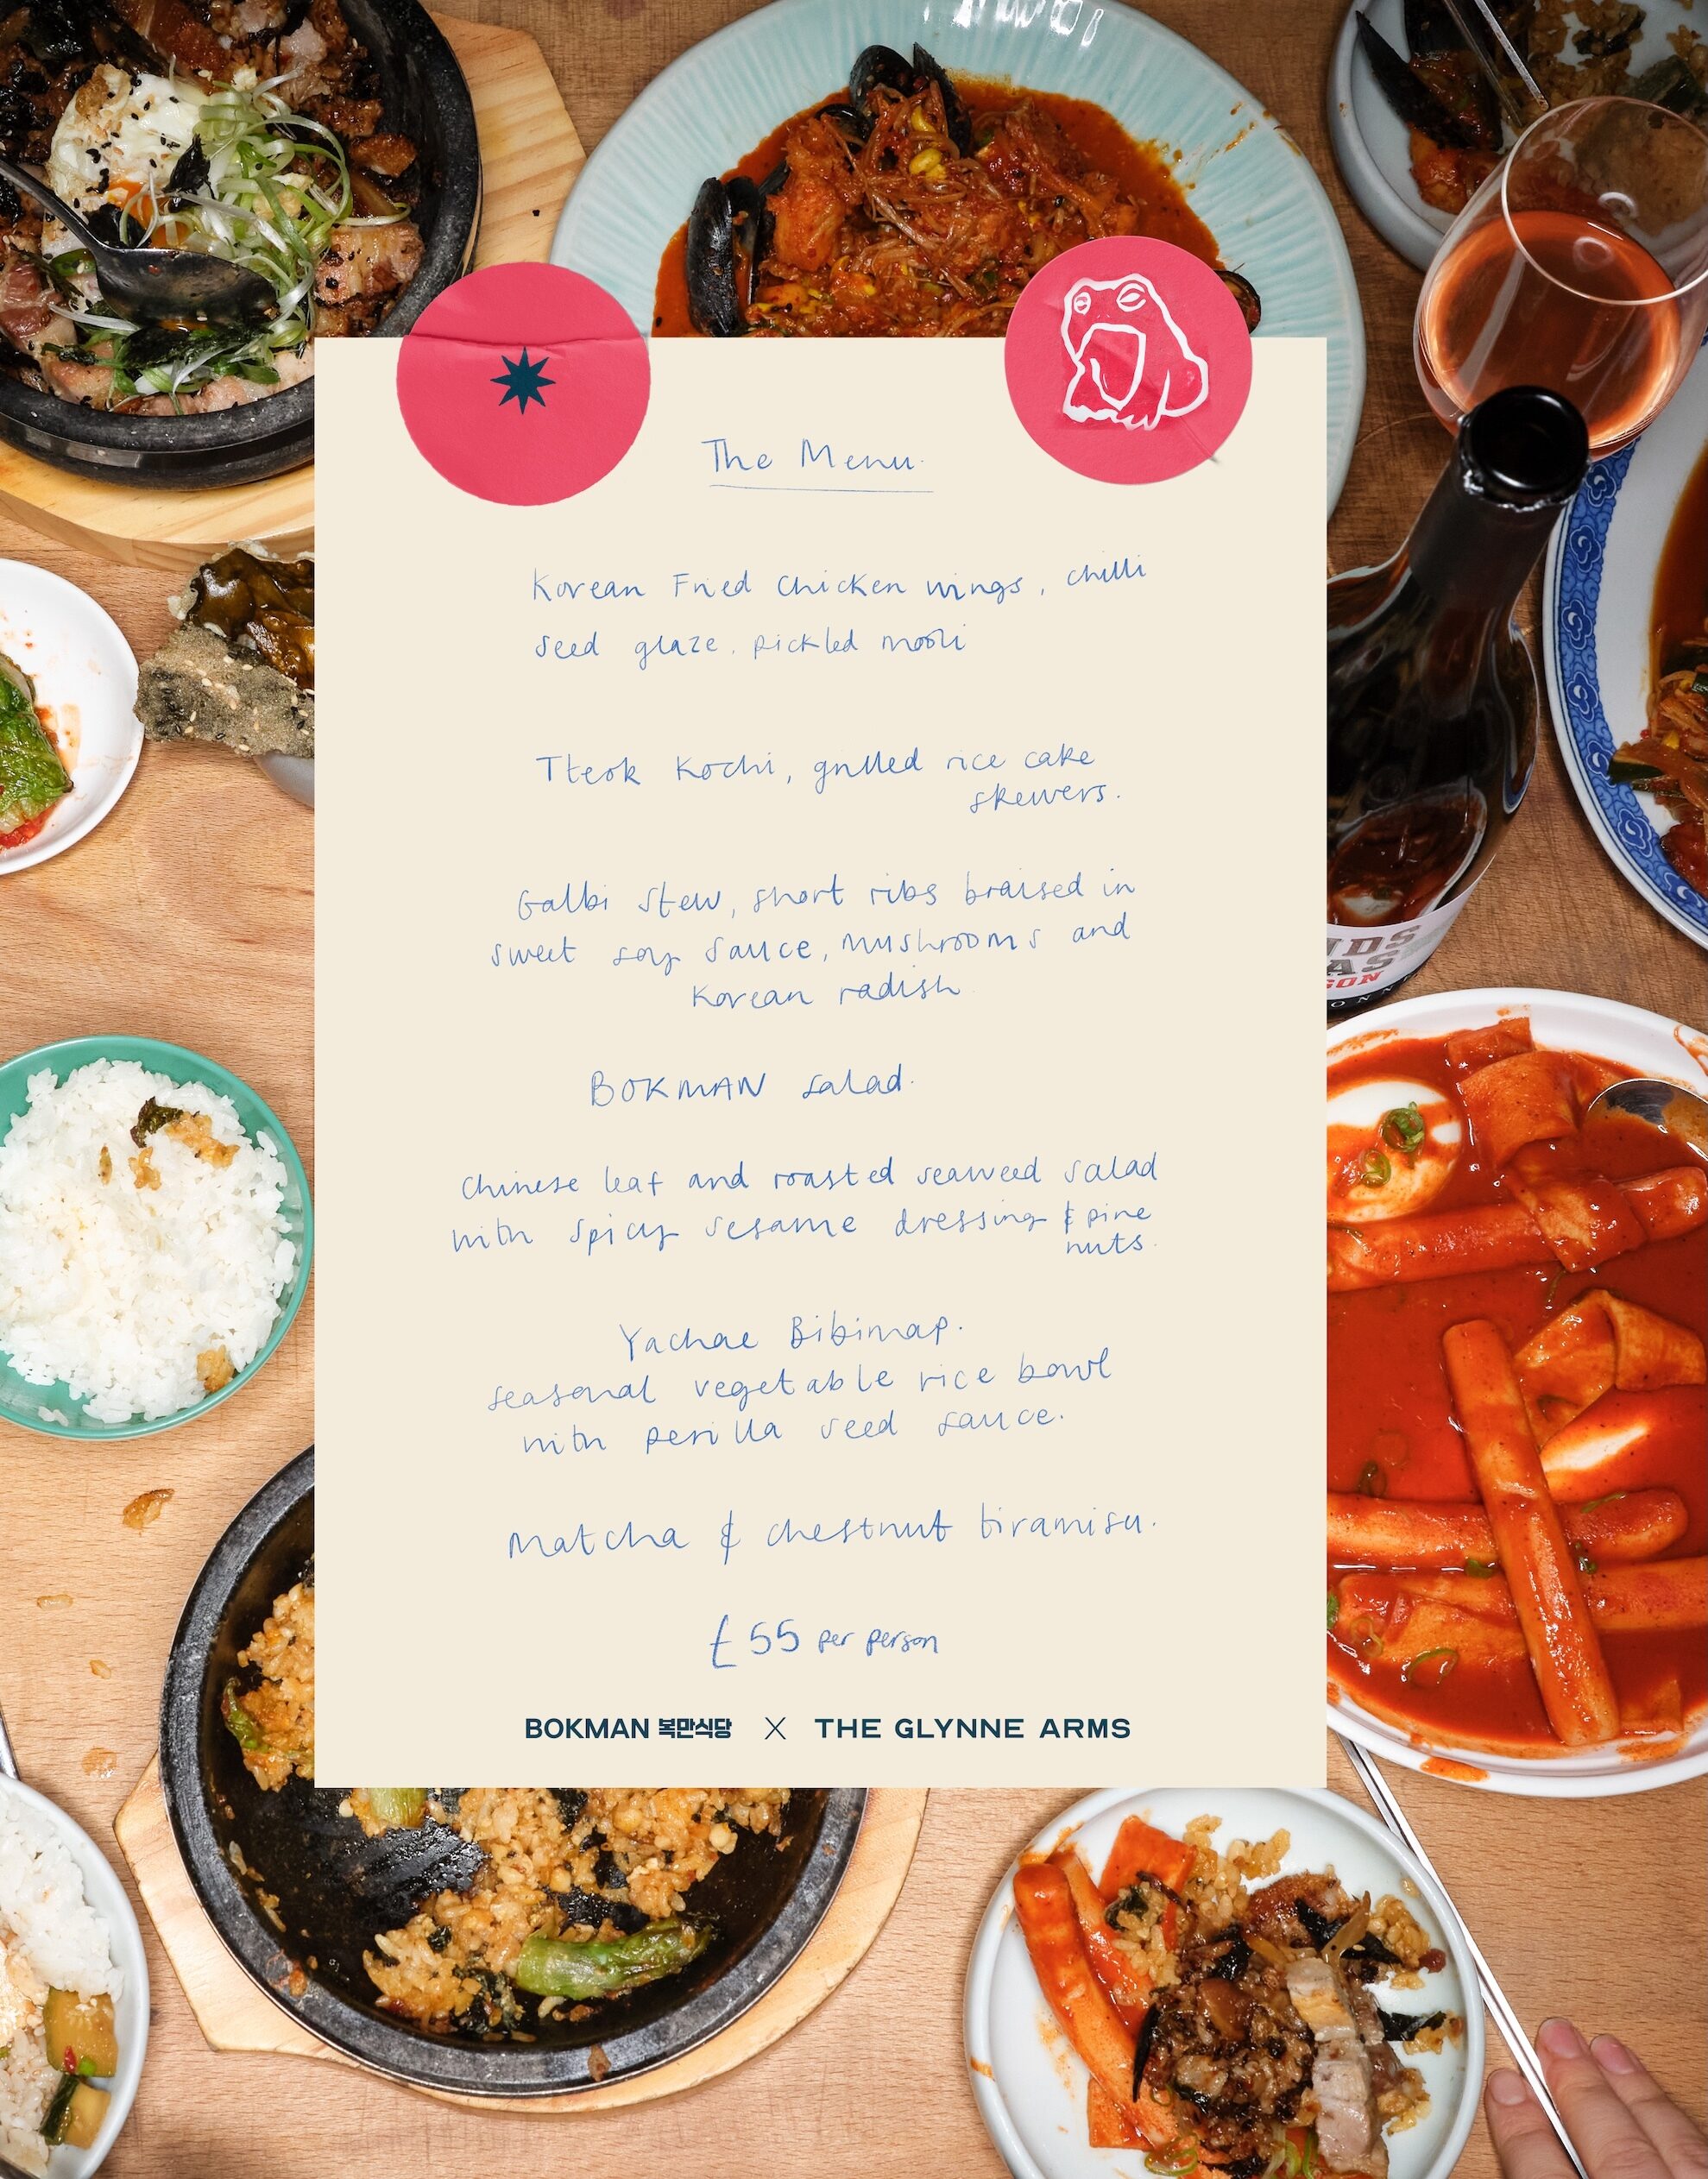 The Menu.
Korean Fried Chicken wings, chilli
seed glaze. pickled mooli
Tteok Kochi, grilled rice cake
skewers.
Galbi stew, short ribs braised in
sweet soy sauce, mushrooms and
Korean radish
BOKMAN salad.
Chinese leaf and roasted seaweed salad
with spicy sesame dressing & pine
nuts.
Yachae Bibimap.
seasonal vegetable rice bowl
with perilla seed sauce.
Matcha & chestnut tiramisu.
£55 per person
BOKMAN 복만식당 X THE GLYNNE ARMS